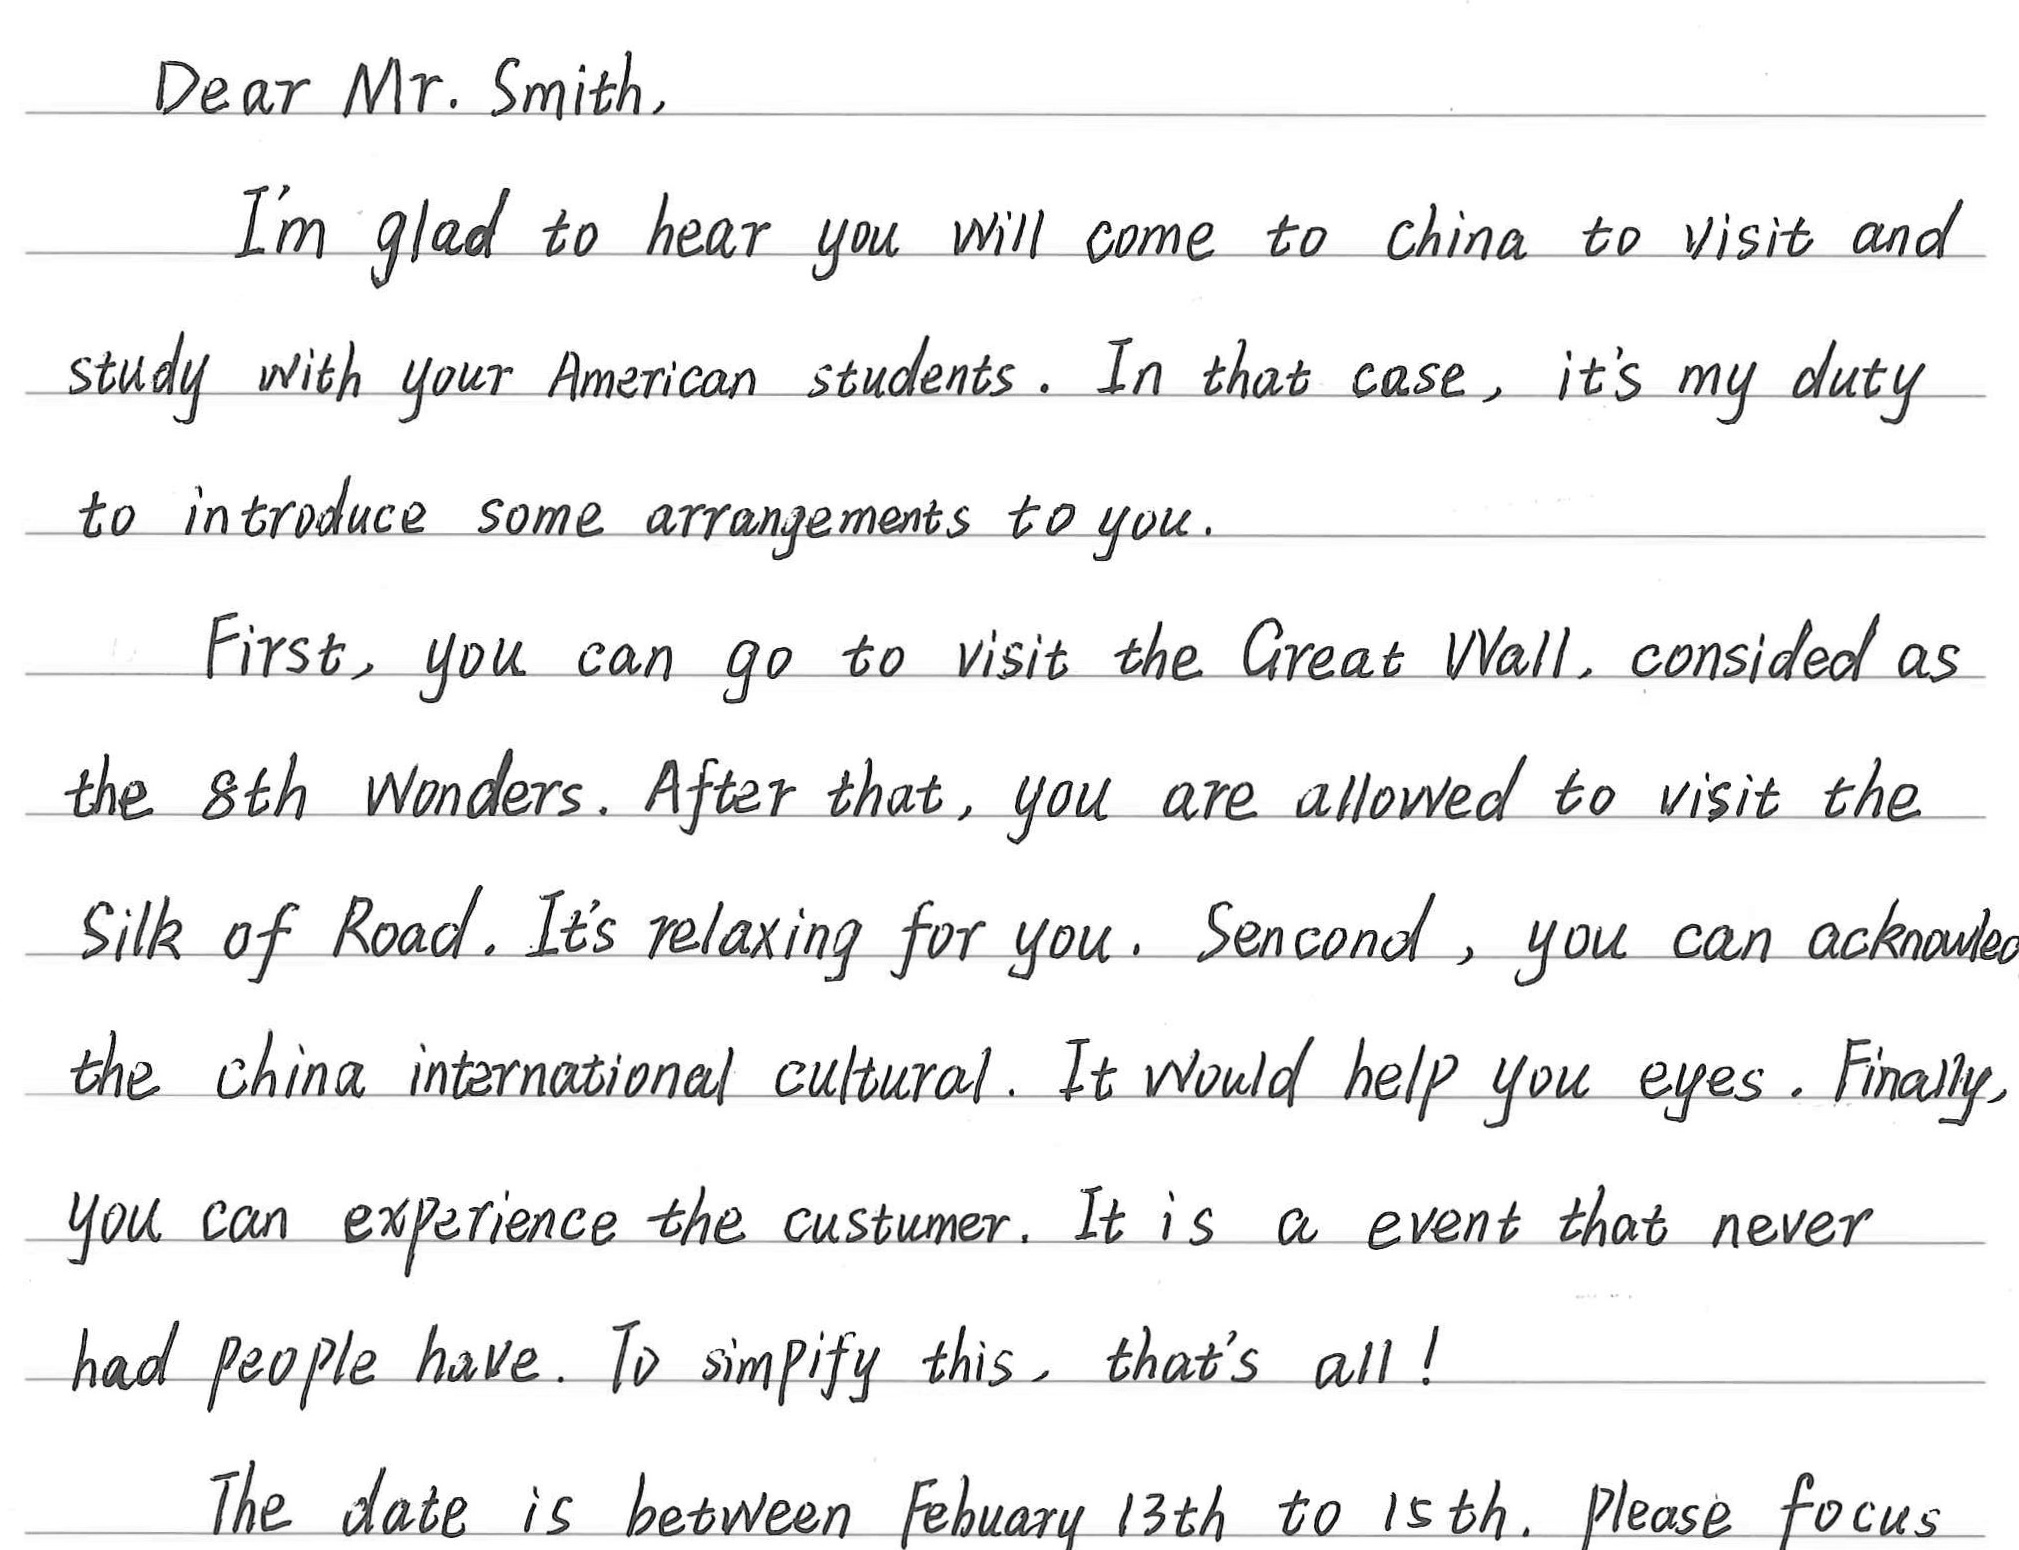 Dear Mr. Smith,
I'm glad to hear you will come to china to visit and
study with your American students. In that case, it's my duty
to introduce some arrangements to you.
First, you can go to visit the Great Wall, consided as
the 8th Wonders. After that, you are allowed to visit the
Silk of Road. It's relaxing for you. Sencond, you can
the china international cultural. It would help you eyes. Finally,
you can experience the custumer. It is a event that never
had people have. To simpify this, that's all!
The date is between Febuary 13th to 15th. Please focus